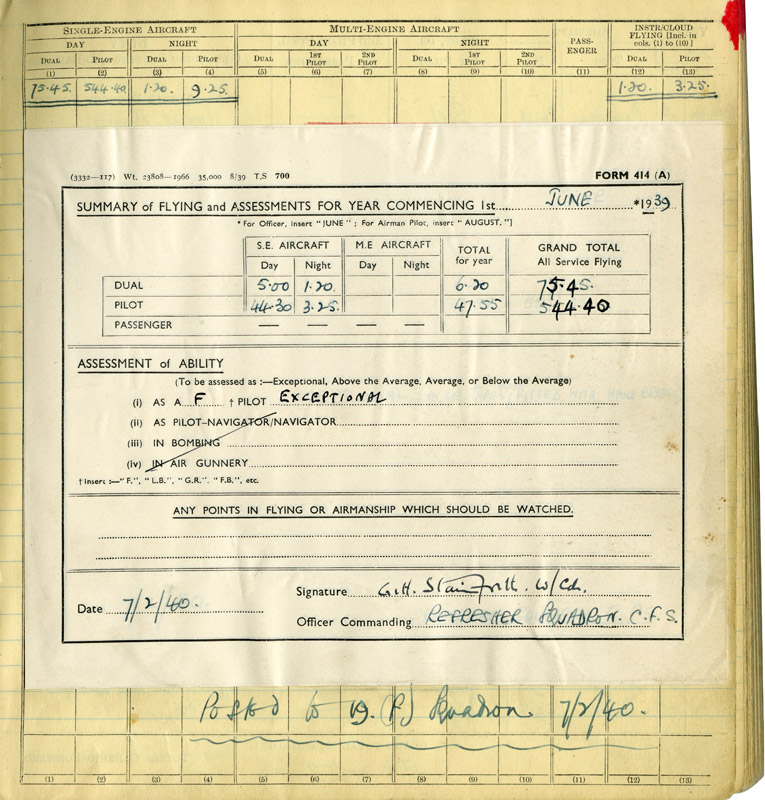 SINGLE-ENGINE AIRCRAFT MULTI-ENGINE AIRCRAFT PASS-ENGER INSTR/CLOUD FLYING [Incl. in cols. (1) to (10)]
DAY NIGHT DAY NIGHT
DUAL PILOT DUAL PILOT DUAL 1ST PILOT 2ND PILOT DUAL 1ST PILOT 2ND PILOT DUAL PILOT
(1) (2) (3) (4) (5) (6) (7) (8) (9) (10) (11) (12) (13)
75.45. 544.40. 1.20. 9.25. 1.20. 3.25.
(3332—117) Wt. 23808—1966 35,000 8/39 T.S 700 FORM 414 (A)
SUMMARY of FLYING and ASSESSMENTS FOR YEAR COMMENCING 1st JUNE *1939
* For Officer, insert "JUNE" ; For Airman Pilot, insert "AUGUST."]
S.E. AIRCRAFT M.E AIRCRAFT TOTAL for year GRAND TOTAL All Service Flying
Day Night Day Night
DUAL 5.00 1.20. 6.20 75.45.
PILOT 44.30 3.25. 47.55 544.40
PASSENGER — — — —
ASSESSMENT of ABILITY
(To be assessed as :—Exceptional, Above the Average, Average, or Below the Average)
(i) AS A F † PILOT EXCEPTIONAL
(ii) AS PILOT-NAVIGATOR/NAVIGATOR
(iii) IN BOMBING
(iv) IN AIR GUNNERY
† Insert :—"F.", "L.B.", "G.R." "F.B.", etc.
ANY POINTS IN FLYING OR AIRMANSHIP WHICH SHOULD BE WATCHED.
Date 7/2/40. Signature G.H. Stainforth. W/Cdr.
Officer Commanding REFRESHER SQUADRON. C.F.S.
Posted to 19. (F) Squadron 7/2/40.
(1) (2) (3) (4) (5) (6) (7) (8) (9) (10) (11) (12) (13)